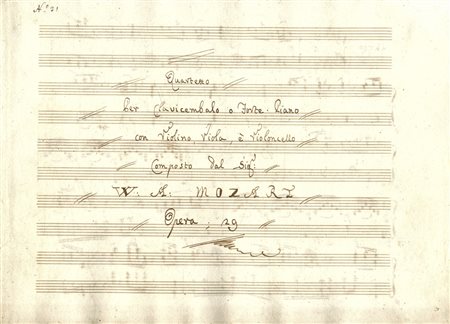 N.° 21
Quartetto
Per Clavicembalo o Forte-Piano
con Violino, Viola, è Violoncello
Composto Dal Sig:
W: A: MOZART
Opera; 29